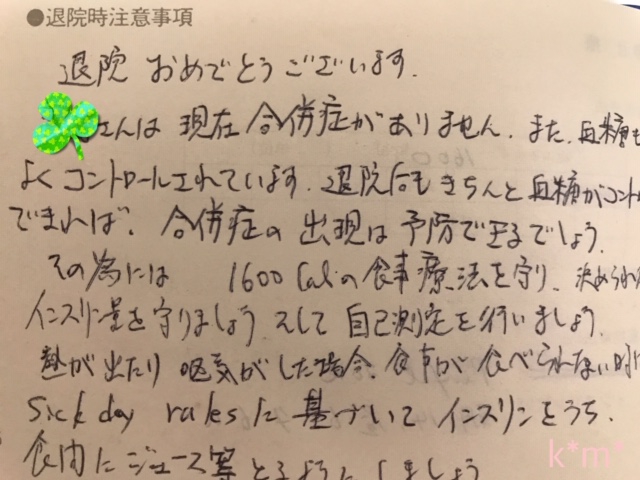 ●退院時注意事項
退院 おめでとうございます.
さんは 現在 合併症がありません. また、血糖も
よくコントロールされています. 退院后も きちんと 血糖がコント
できれば、合併症の 出現は 予防できるでしょう.
その為には 1600 Calの食事療法を守り、決められた
インスリン量を守りましょう. そして 自己測定を行いましょう.
熱が出たり 嘔気がした場合、食事が 食べられない時に
Sick day rules に 基づいて インスリンをうち.
食間に ジュース等 とるようにしましょう
k*m*